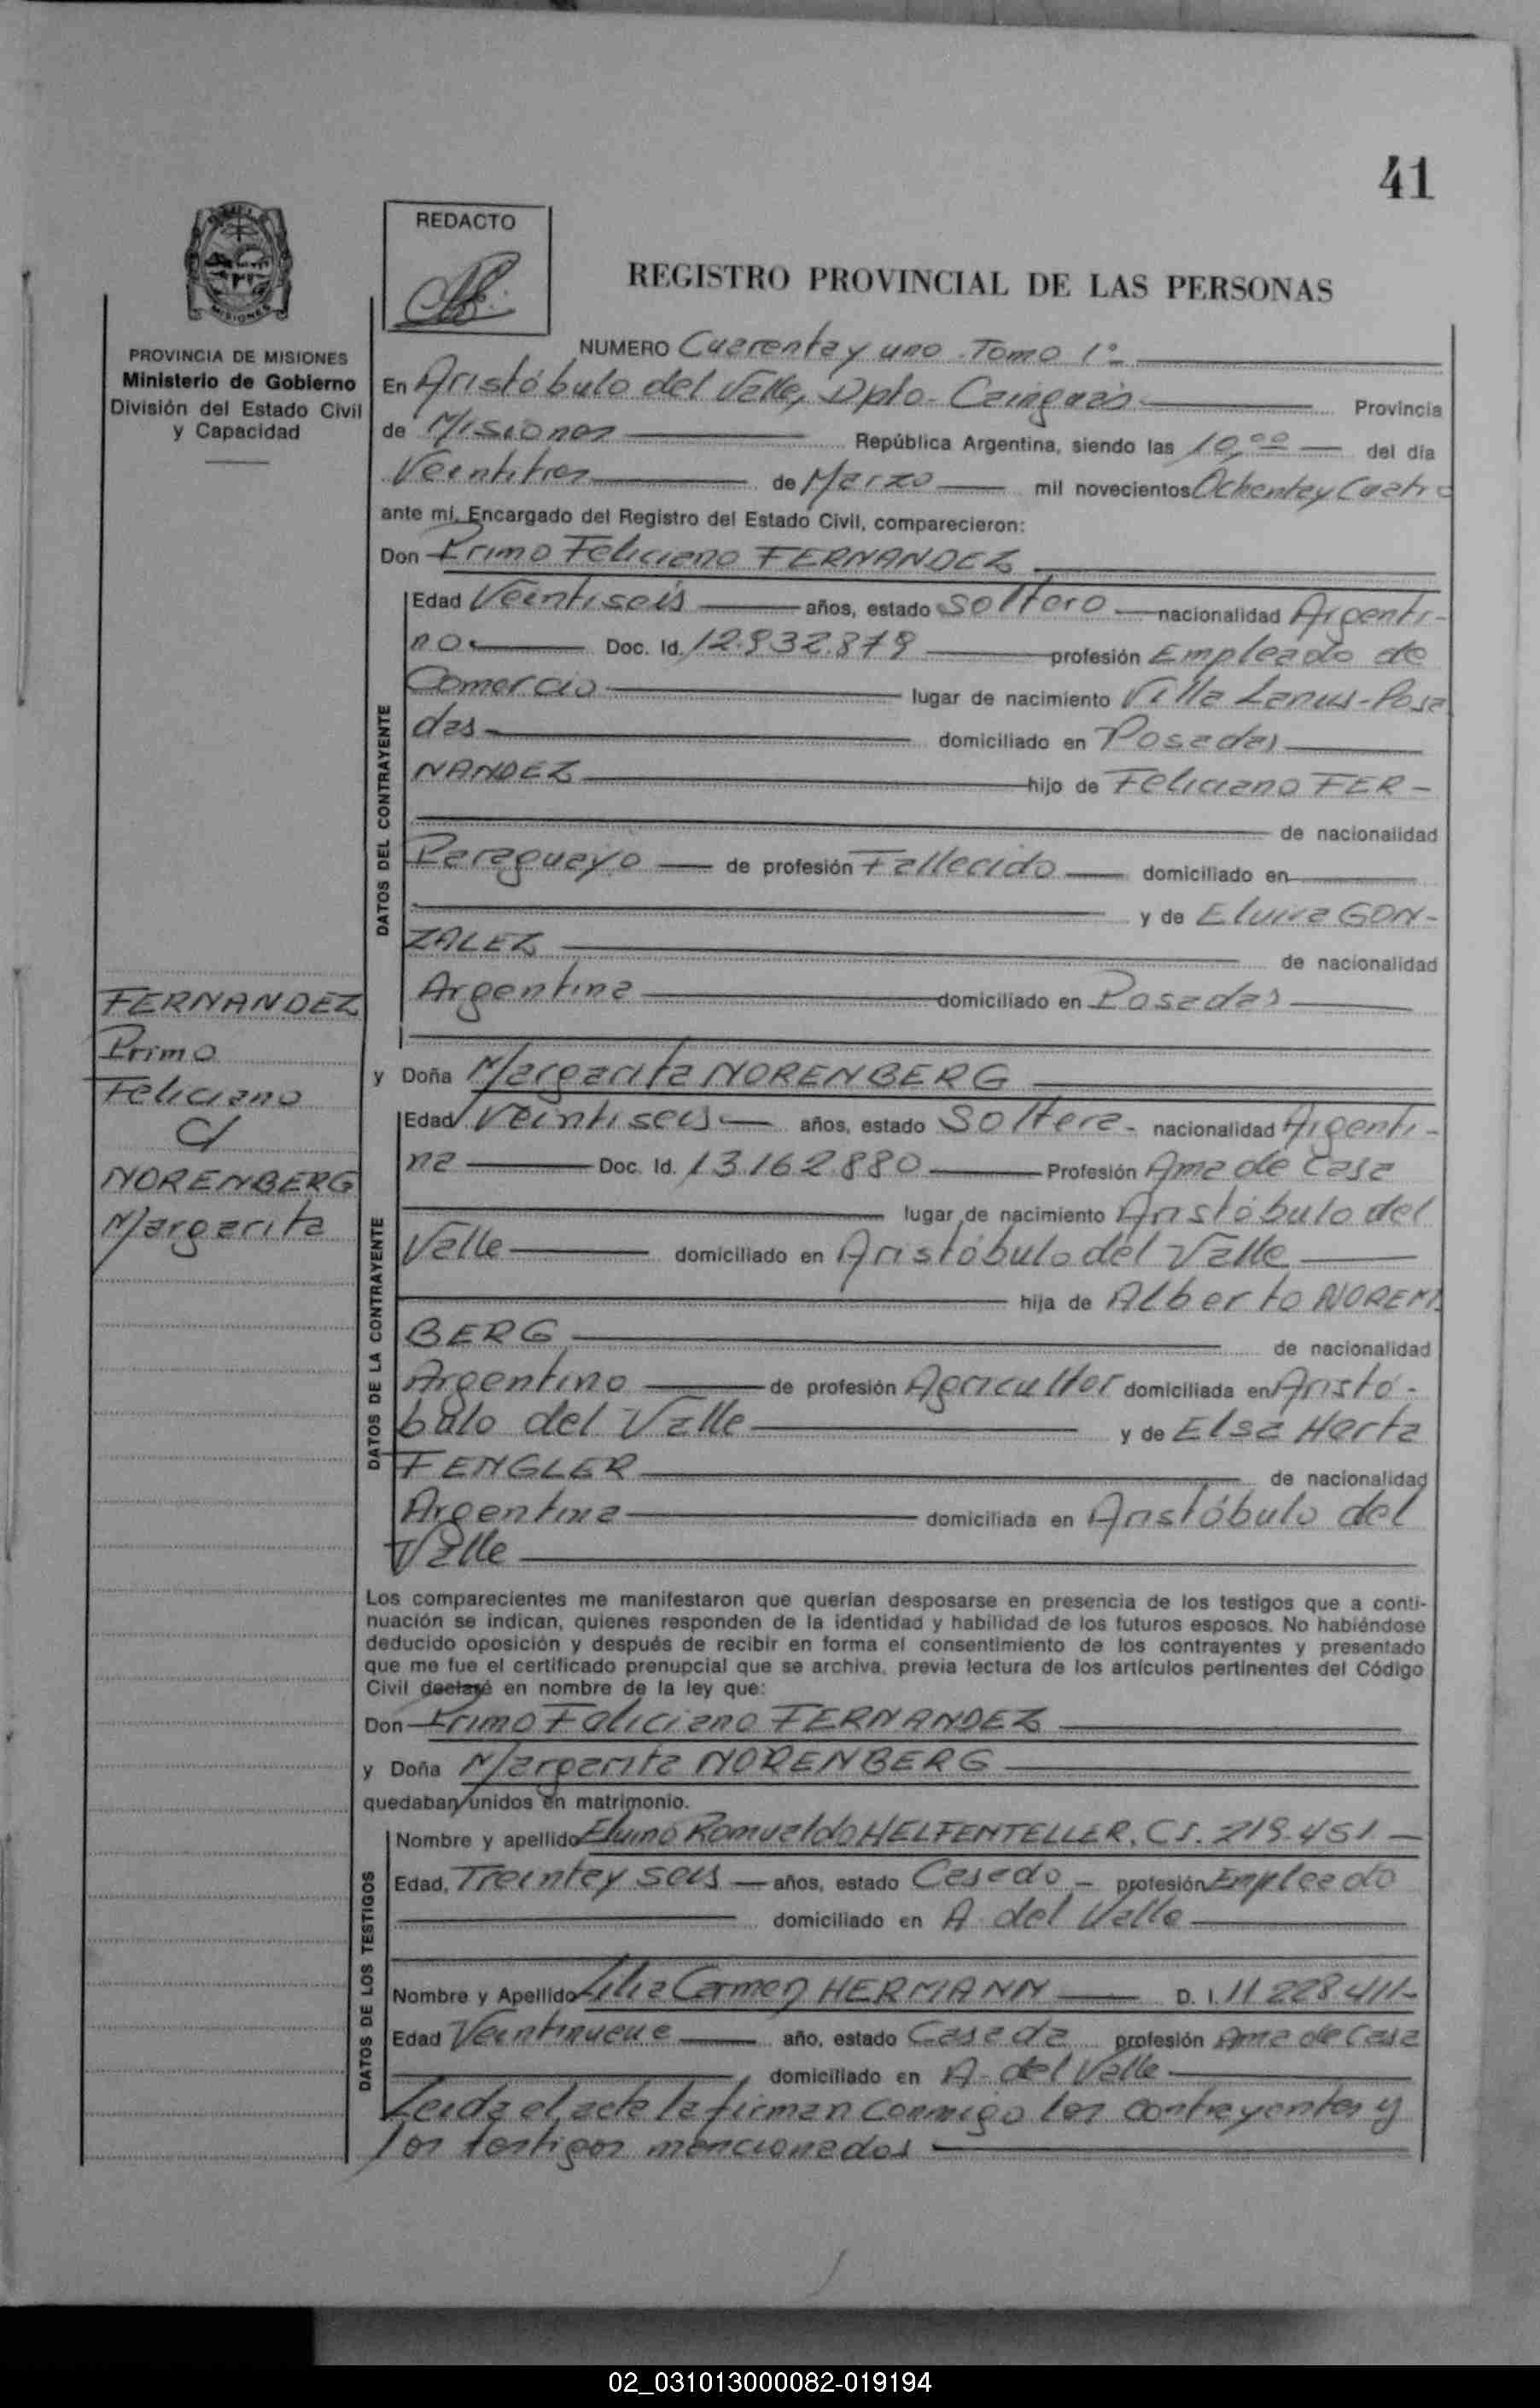 41
REDACTO
REGISTRO PROVINCIAL DE LAS PERSONAS
MISIONES
PROVINCIA DE MISIONES
Ministerio de Gobierno
División del Estado Civil
y Capacidad
NUMERO Cuarenta y uno. Tomo 1º
En Aristóbulo del Valle, Dpto. Cainguás Provincia
de Misiones República Argentina, siendo las 10,00 del día
Veintitres de Marzo mil novecientos Ochenta y Cuatro
ante mí, Encargado del Registro del Estado Civil, comparecieron:
Don Primo Feliciano FERNANDEZ
DATOS DEL CONTRAYENTE
Edad Veintiseis años, estado Soltero nacionalidad Argenti-
no Doc. Id. 12.932.879 profesión Empleado de
Comercio lugar de nacimiento Villa Lanus-Posa
das domiciliado en Posadas
NANDEZ hijo de Feliciano FER-
de nacionalidad
Paraguayo de profesión Fallecido domiciliado en
y de Elvira GON-
ZALEZ de nacionalidad
Argentina domiciliado en Posadas
FERNANDEZ
Primo
Feliciano
c/
NORENBERG
Margarita
y Doña Margarita NORENBERG
DATOS DE LA CONTRAYENTE
Edad Veintiseis años, estado Soltera- nacionalidad Argenti-
na Doc. Id. 13.162.880 Profesión Ama de Casa
lugar de nacimiento Aristóbulo del
Valle domiciliado en Aristóbulo del Valle
hija de Alberto NOREN
BERG de nacionalidad
Argentino de profesión Agricultor domiciliada en Aristó-
bulo del Valle y de Elsa Herta
FENGLER de nacionalidad
Argentina domiciliada en Aristóbulo del
Valle
Los comparecientes me manifestaron que querían desposarse en presencia de los testigos que a conti-
nuación se indican, quienes responden de la identidad y habilidad de los futuros esposos. No habiéndose
deducido oposición y después de recibir en forma el consentimiento de los contrayentes y presentado
que me fue el certificado prenupcial que se archiva, previa lectura de los artículos pertinentes del Código
Civil declaré en nombre de la ley que:
Don Primo Feliciano FERNANDEZ
y Doña Margarita NORENBERG
quedaban unidos en matrimonio.
DATOS DE LOS TESTIGOS
Nombre y apellido Eluino Romualdo HELFENTELLER. C.I. 219.451
Edad, Treinta y seis años, estado Casado - profesión Empleado
domiciliado en A. del Valle
Nombre y Apellido Lilia Carmen HERMANN D. I. 11.228.411-
Edad Veintinueve año, estado Casada profesión Ama de Casa
domiciliado en A. del Valle
Leida el acta la firman conmigo los contrayentes y
los testigos mencionados
02_031013000082-019194